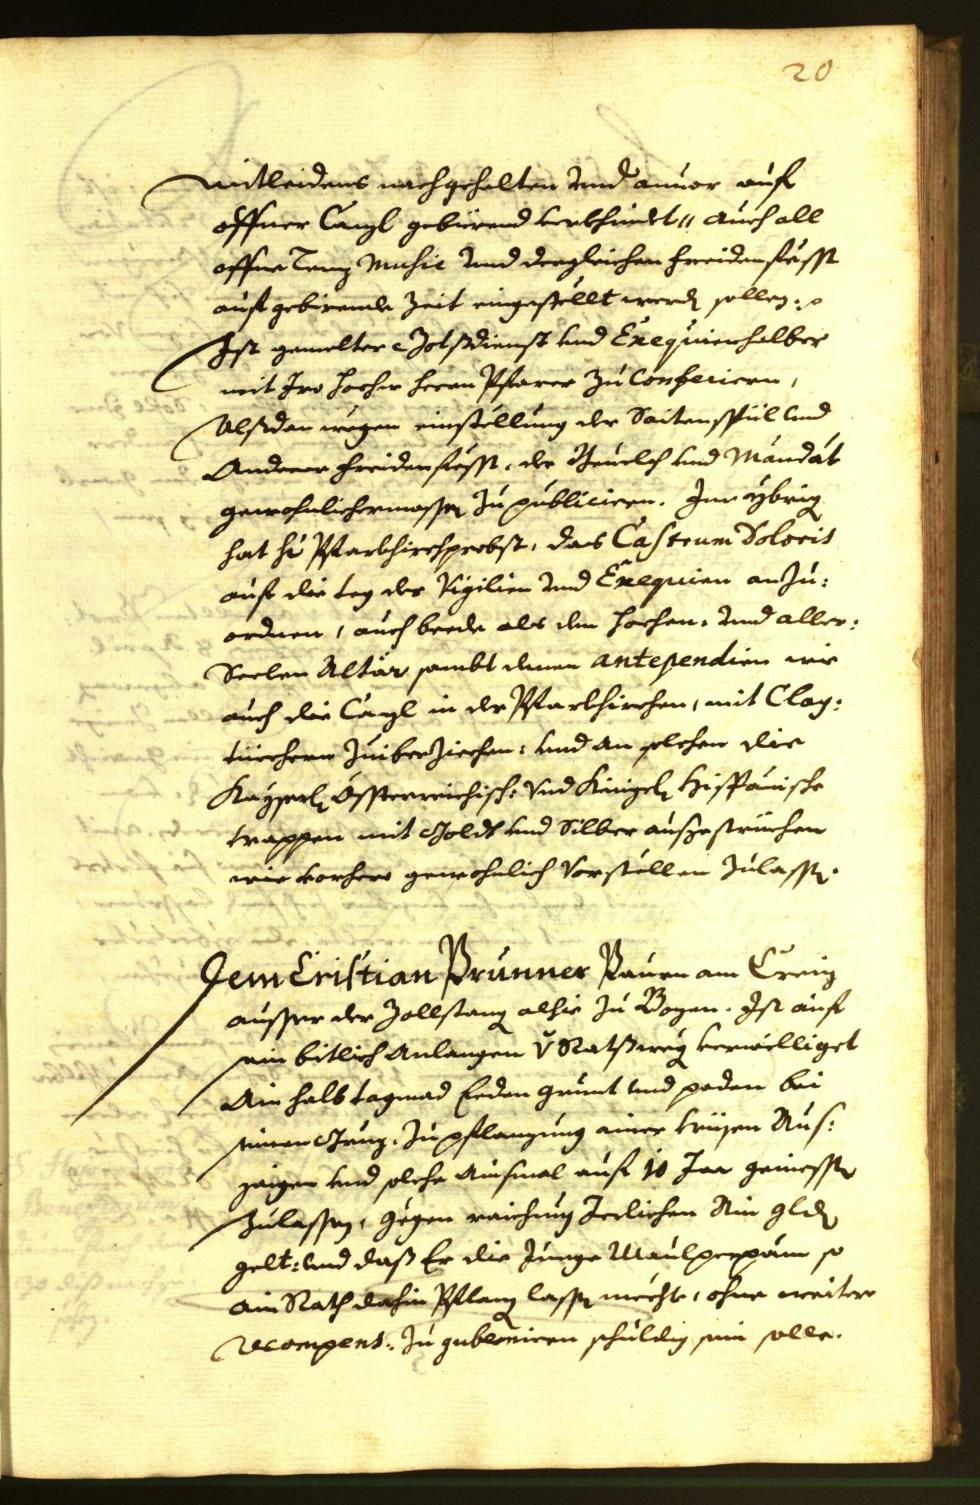 20
mitleidens nachgehalten vnd anuor auf
offner Canzl gebürend verkhindet, auch all
offne Tenz Music vnd dergleichen freidensfesst
auf gebirende Zeit eingestellt werden sollen.
Ist gemelter Gotsdienst vnd Exequien halber
mit Iro hochw herrn Pfarrer zu Conferiern,
Alsdan wegen einstellung der Saitenspil vnd
Anderer freidensfesst, der Beuelch vnd Mandat
gewohnlichermassen zu publiciern. Im ybrig
hat hr Pfarkhirchprobst, das Castrum Doloris
auf die teg der Vigilien vnd Exequien anzu:
ordnen, auch beede als den hochen: vnd aller:
Seelen Altar sambt denen antependien wie
auch die Canzl in der Pfarkhirchen, mit Clag:
tüechern zuiberziechen: vnd an solchen die
Kayserl Össterreichisch: vnd Künigl Hispänische
wappen mit Gold vnd Silber ausgestrichen
wie vorhero gewohnlich Vorstellen zulassen.
Dem Cristian Prunner Paurn am
ausser der Zollstang alhie zu Bozen. Ist auf
sein bitlich Anlangen v Rats weg verwilliget
Ain halb tagmad Erden grunt vnd poden bei
seinen zu pflanzung ainer
vnd solche Ainsmal auf 10 Jar geniessen
zulassen, gegen raichung Jerlichen Ain gldn
gelt: vnd daß Er die Junge Maulperpäum so
ain Rath dahin Pflanz lassen mechte, ohne weitere
recompens: zu guberniern schuldig sein solle.